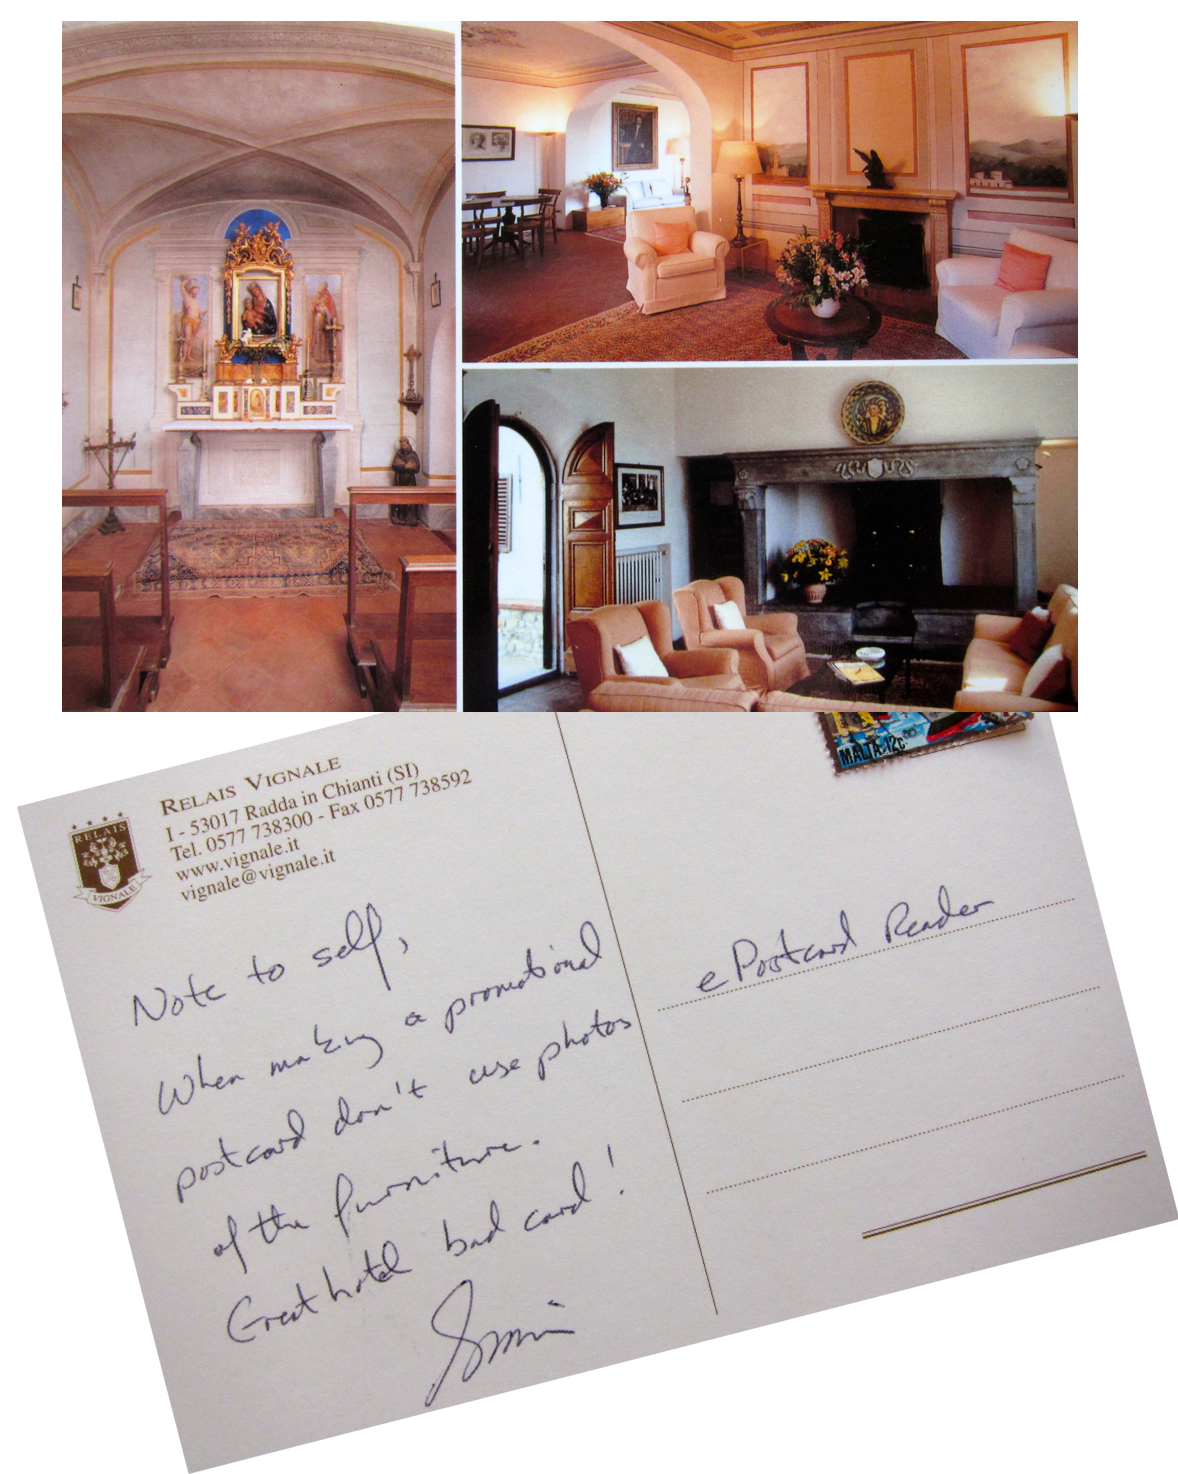 RELAIS VIGNALE
I - 53017 Radda in Chianti (SI)
Tel. 0577 738300 - Fax 0577 738592
www.vignale.it
vignale@vignale.it
RELAIS
VIGNALE
MALTA 12c
Note to self,
When making a promotional
postcard don't use photos
of the furniture.
Great hotel bad card!
e Postcard Reader